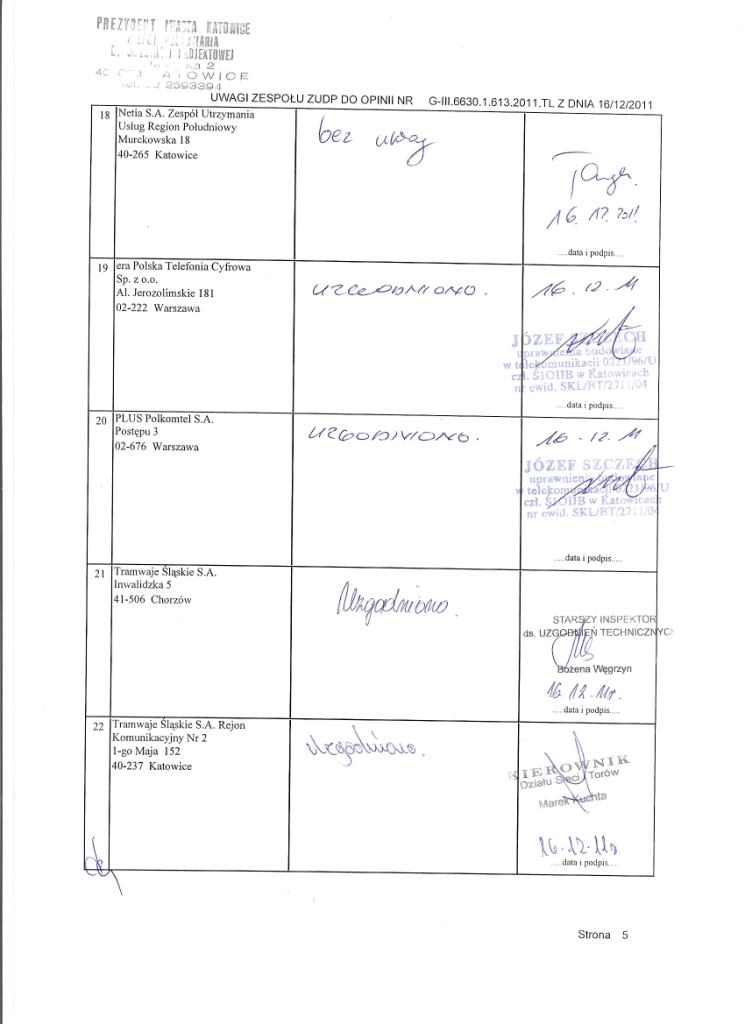 PREZYDENT MIASTA KATOWICE
KATOWICE
UWAGI ZESPOŁU ZUDP DO OPINII NR G-III.6630.1.613.2011.TL Z DNIA 16/12/2011
18 Netia S.A. Zespół Utrzymania
Usług Region Południowy
Murckowska 18
40-265 Katowice
bez uwag
16. 12. 2011
.....data i podpis.....
19 era Polska Telefonia Cyfrowa
Sp. z o.o.
Al. Jerozolimskie 181
02-222 Warszawa
UZGODNIONO.
16. 12. 11
JÓZEF SZCZECH
uprawnienia budowlane
w telekomunikacji 0221/96/U
czł. ŚIOIIB w Katowicach
nr ewid. SKL/BT/2711/04
.....data i podpis.....
20 PLUS Polkomtel S.A.
Postępu 3
02-676 Warszawa
UZGODNIONO.
16. 12. 11
JÓZEF SZCZECH
uprawnienia budowlane
w telekomunikacji 0221/96/U
czł. ŚIOIIB w Katowicach
nr ewid. SKL/BT/2711/04
.....data i podpis.....
21 Tramwaje Śląskie S.A.
Inwalidzka 5
41-506 Chorzów
Uzgodniono.
STARSZY INSPEKTOR
ds. UZGODNIEŃ TECHNICZNYCH
Bożena Węgrzyn
16.12.11r.
.....data i podpis.....
22 Tramwaje Śląskie S.A. Rejon
Komunikacyjny Nr 2
1-go Maja 152
40-237 Katowice
Uzgodniono.
KIEROWNIK
Działu Sieci i Torów
Marek Kuchta
16.12.11r.
.....data i podpis.....
Strona 5